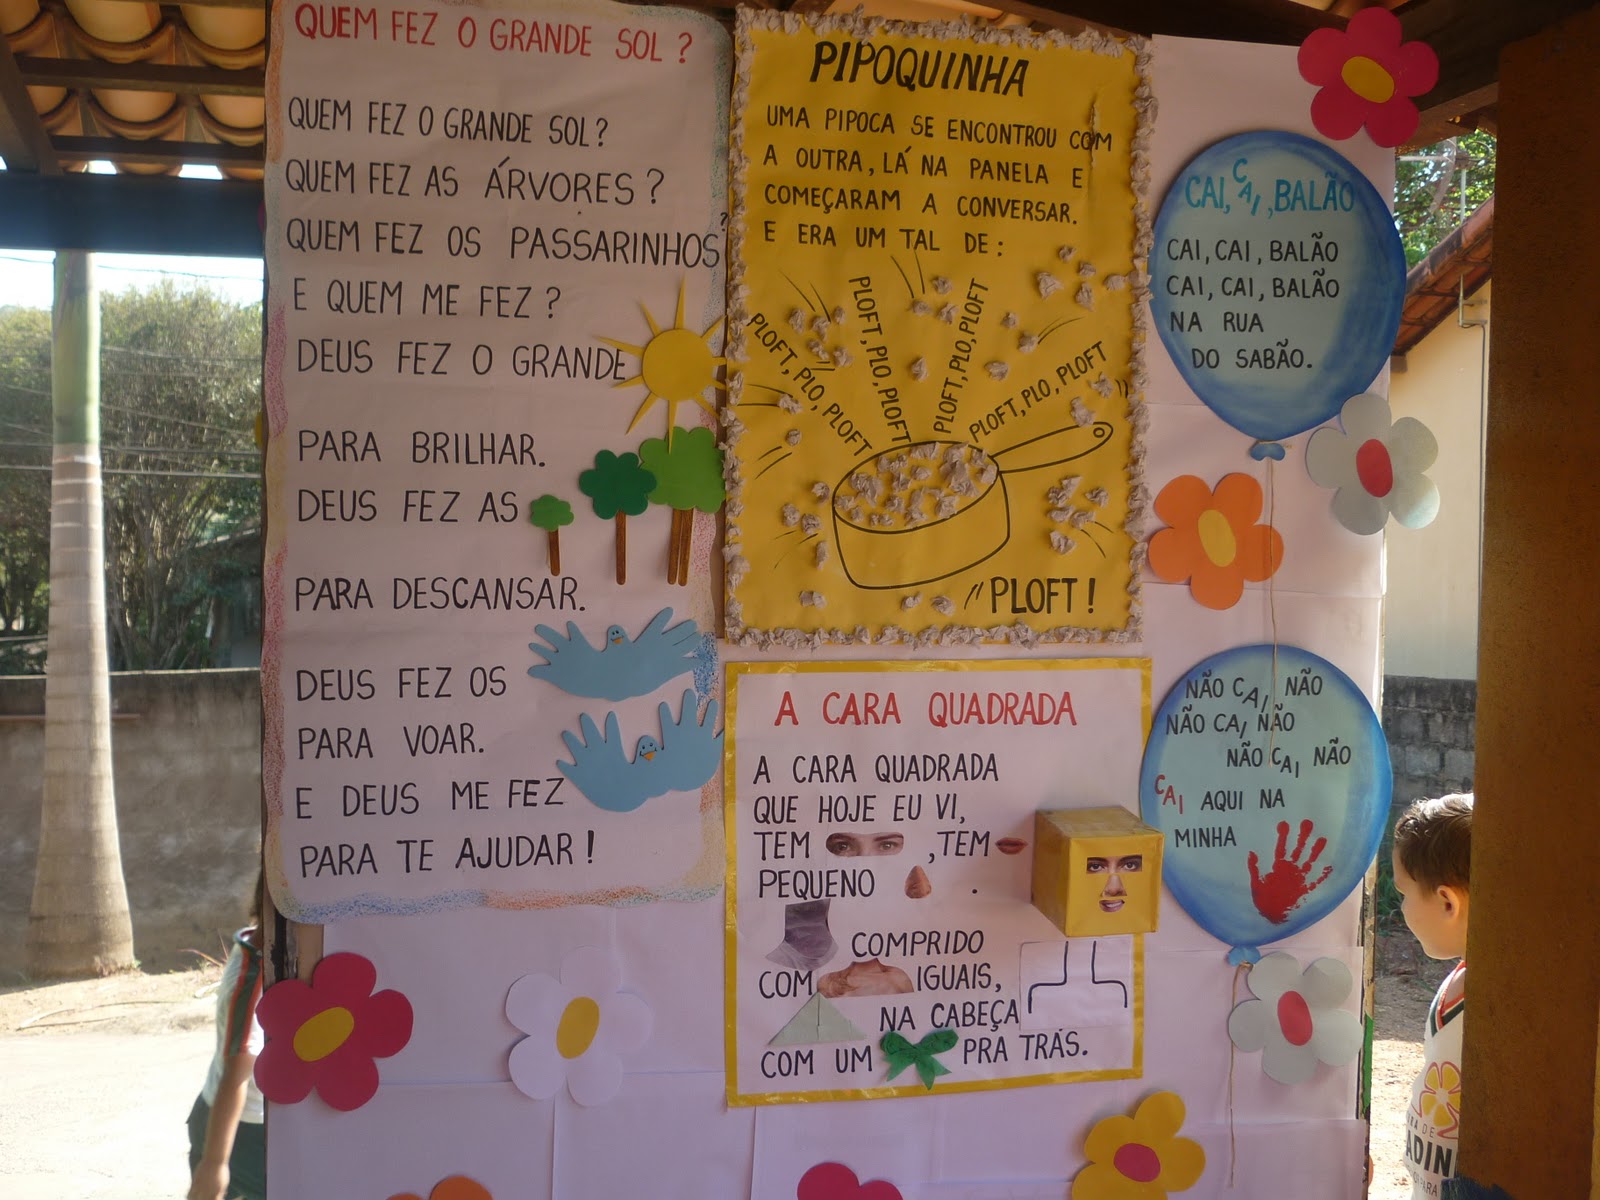 QUEM FEZ O GRANDE SOL ?
QUEM FEZ O GRANDE SOL?
QUEM FEZ AS ÁRVORES ?
QUEM FEZ OS PASSARINHOS?
E QUEM ME FEZ ?
DEUS FEZ O GRANDE
PARA BRILHAR.
DEUS FEZ AS
PARA DESCANSAR.
DEUS FEZ OS
PARA VOAR.
E DEUS ME FEZ
PARA TE AJUDAR !
PIPOQUINHA
UMA PIPOCA SE ENCONTROU COM
A OUTRA, LÁ NA PANELA E
COMEÇARAM A CONVERSAR.
E ERA UM TAL DE :
PLOFT, PLO, PLOFT
PLOFT, PLO, PLOFT
PLOFT, PLO, PLOFT
PLOFT, PLO, PLOFT
PLOFT !
A CARA QUADRADA
A CARA QUADRADA
QUE HOJE EU VI,
TEM , TEM
PEQUENO .
COMPRIDO
COM IGUAIS,
NA CABEÇA
COM UM PRA TRÁS.
CAI, CAI, BALÃO
CAI, CAI, BALÃO
CAI, CAI, BALÃO
NA RUA
DO SABÃO.
NÃO CAI, NÃO
NÃO CAI, NÃO
NÃO CAI, NÃO
CAI AQUI NA
MINHA